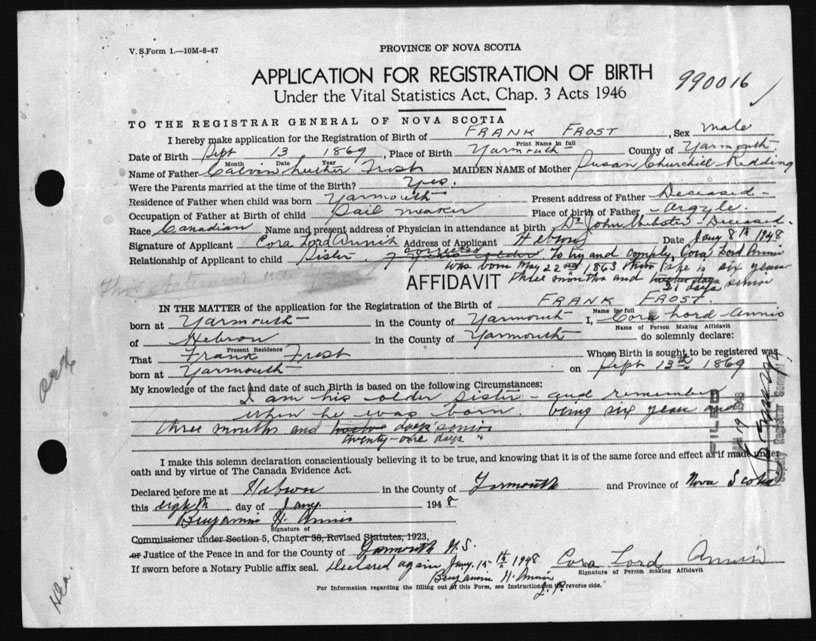 V. S. Form 1.—10M-8-47
PROVINCE OF NOVA SCOTIA
990016
APPLICATION FOR REGISTRATION OF BIRTH
Under the Vital Statistics Act, Chap. 3 Acts 1946
TO THE REGISTRAR GENERAL OF NOVA SCOTIA
I hereby make application for the Registration of Birth of FRANK FROST, Sex male
Print Name in full
Date of Birth Sept 13 1869, Place of Birth Yarmouth County of Yarmouth
Month Date Year
Name of Father Calvin Luther Frost MAIDEN NAME of Mother Susan Churchill Redding
Were the Parents married at the time of the Birth? Yes.
Residence of Father when child was born Yarmouth Present address of Father Deceased-
Occupation of Father at Birth of child Sail maker Place of birth of Father, - Argyle.
Race Canadian Name and present address of Physician in attendance at birth Dr John Webster Deceased-
Signature of Applicant Cora Lord Annis Address of Applicant Hebron Date Jany 8th 1948
Relationship of Applicant to child Sister. to try and comply, Cora Lord Annis
was born May 22nd 1863 six years
three months and 21 days senior
AFFIDAVIT
IN THE MATTER of the application for the Registration of the Birth of FRANK FROST.
Name in full
born at Yarmouth in the County of Yarmouth I, Cora Lord Annis
Name of Person Making Affidavit
of Hebron in the County of Yarmouth do solemnly declare:
Present Residence
That Frank Frost Whose Birth is sought to be registered was
born at Yarmouth on Sept 13th 1869
My knowledge of the fact and date of such Birth is based on the following Circumstances:
I am his older Sister - and remember
when he was born. being six year and
three months and twelve days senior
twenty-one days
FILED
19 1948
Deputy Registrar General
I make this solemn declaration conscientiously believing it to be true, and knowing that it is of the same force and effect as if made under
oath and by virtue of The Canada Evidence Act.
Declared before me at Hebron in the County of Yarmouth and Province of Nova Scotia
this eighth day of Jany. 1948
Benjamin H. Annis
Signature of
Commissioner under Section 5, Chapter 38, Revised Statutes, 1923,
or Justice of the Peace in and for the County of Yarmouth N.S.
If sworn before a Notary Public affix seal. Declared again Jany. 15th 1948 Cora Lord Annis
Signature of Person making Affidavit
Benjamin H. Annis
J.P.
For Information regarding the filling out of this Form, see Instructions on the reverse side.